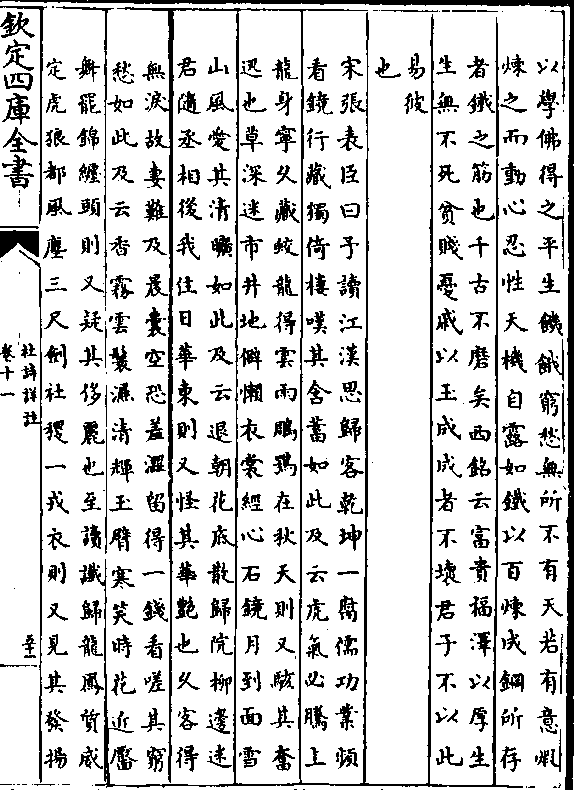 以學佛得之平生饑餓窮愁無所不有天若有意煆
煉之而動心忍性天機自露如鐵以百煉成鋼所存
者鐵之筋也千古不磨矣西銘云富貴福澤以厚生
生無不死貧賤憂戚以玉成成者不壊君子不以此
易彼
也
宋張表臣曰予讀江漢思歸客乾坤一腐儒功業頻
看鏡行藏獨倚樓嘆其含蓄如此及云虎氣必騰上
龍身寧久藏蛟龍得雲雨鵰鶚在秋天則又駭其奮
迅也草深迷市井地僻懶衣裳經心石鏡月到面雪
山風愛其清曠如此及云退朝花底散歸院栁邊迷
君隨丞相後我住日華東則又怪其華艷也久客得
無淚故妻難及晨囊空恐羞澀留得一錢看嗟其窮
愁如此及云香霧雲鬟濕清輝玉臂寒笑時花近靨
舞罷錦纏頭則又疑其侈麗也至讀讖歸龍鳳質威
定虎狼都風塵三尺劍社稷一戎衣則又見其發揚
欽定四庫全書
杜詩詳註
卷十一